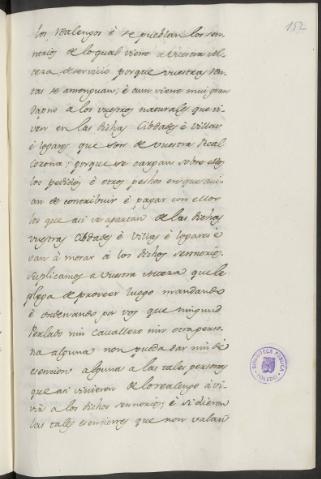 152
los realengos è se pueblan los sen-
norios de lo qual viene à Vuestra Al-
teza deservicio porque vuestras Ren-
tas se amenguan; è aun viene mui gran
danno à los vuestros naturales que vi-
ven en las dichas Cibdades è Villas
è logares que son de vuestra Real
Corona; porque se cargan sobre ellos
los pedidos è otros pechos en que avi-
an de contribuir è pagar con ellos
los que asi se apartan de las dichas
vuestras Cibdades è Villas è logares è
van à morar à los dichos sennorios.
Suplicamos à Vuestra Alteza que le
plega de proveer luego mandando
è ordenando por vos que ningund
Perlado nin Cavallero nin otra perso-
na alguna non pueda dar nin dè
esencion alguna à las tales personas
que asi vinieren de lo realengo à vi-
vir à los dichos sennorios; è si dieren
las tales esenciones que non valan
BIBLIOTECA PUBLICA
TOLEDO